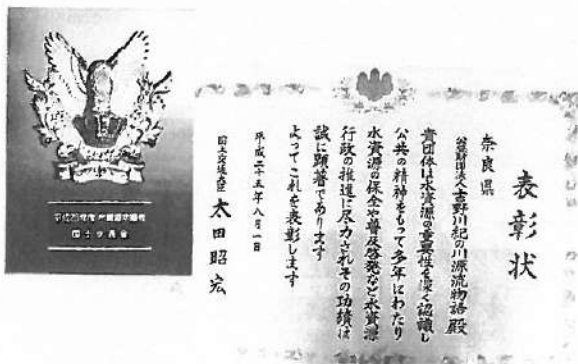 表彰状
奈良県
公益財団法人吉野川紀の川源流物語 殿
貴団体は水資源の重要性を深く認識し
公共の精神をもって多年にわたり
水資源の保全や普及啓発など水資源
行政の推進に尽力されその功績は
誠に顕著であります
よってこれを表彰します
平成二十五年八月一日
国土交通大臣 太田昭宏
国土交通省